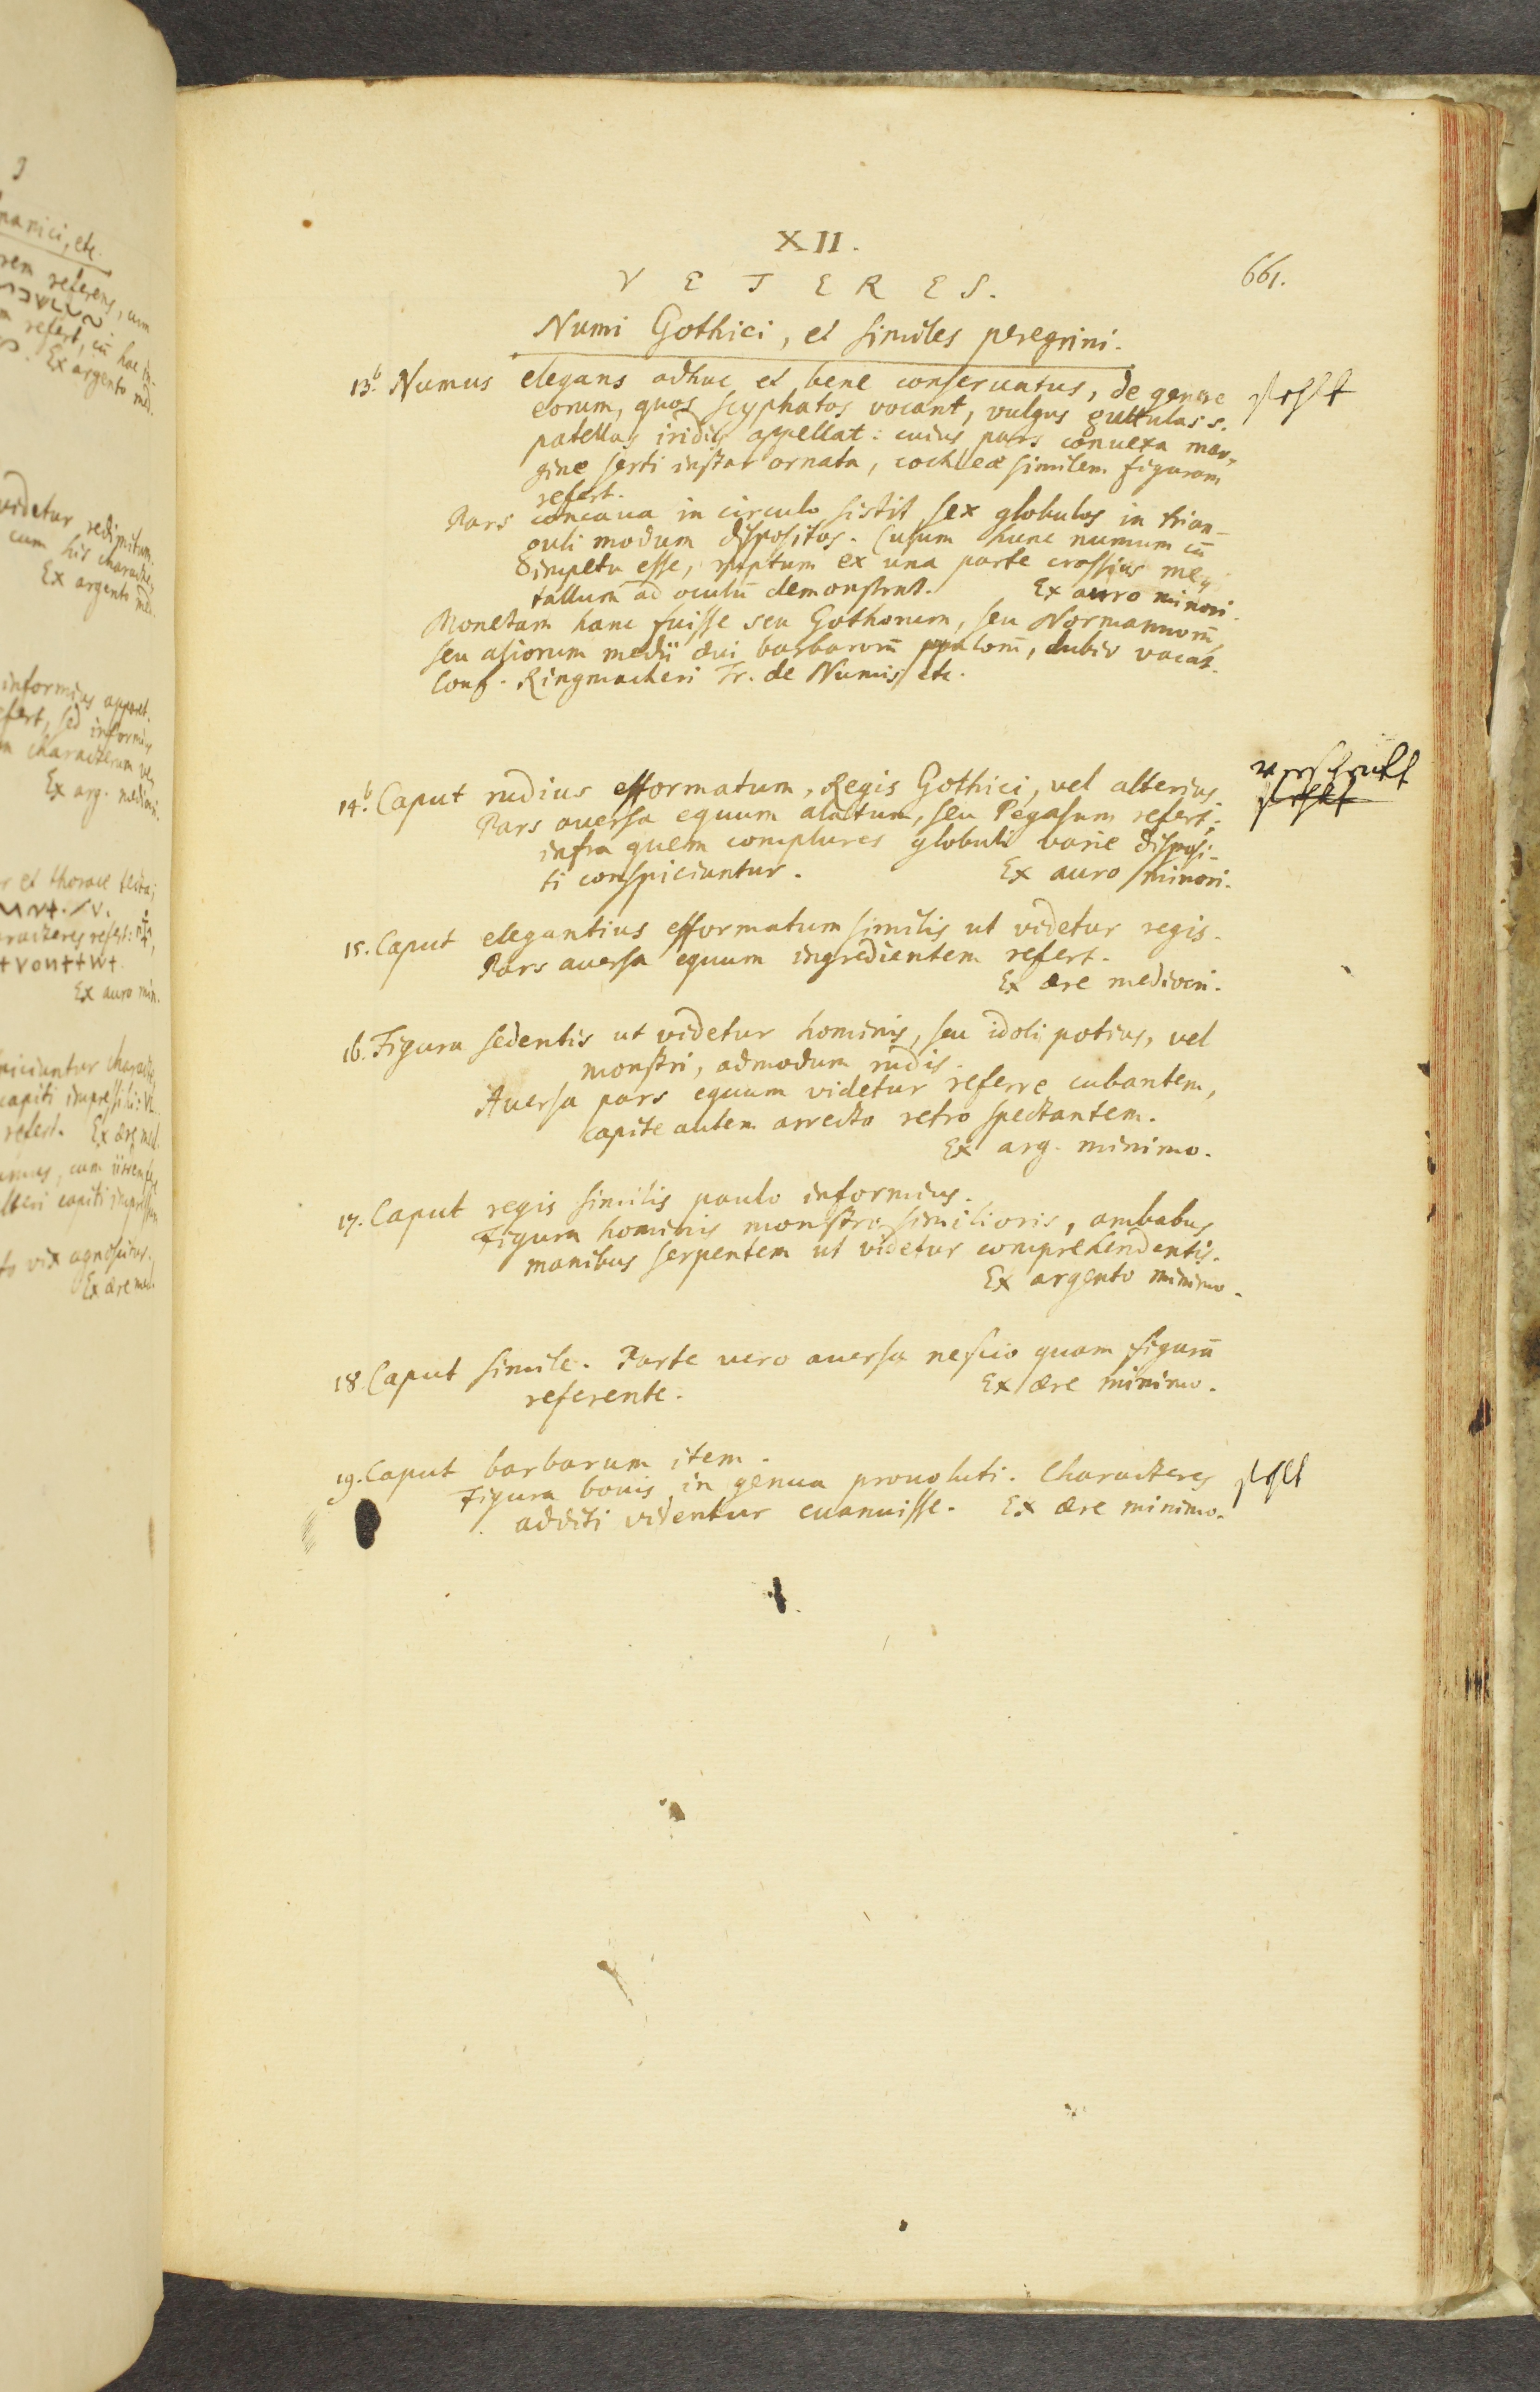 XII.
661.
VETERES.
Numi Gothici, et similes peregrini.
13.b Numus elegans adhuc et bene conseruatus, de genere
fehlt
eorum, quos scyphatos vocant, vulgus guttulas s.
patellas iridis appellat: cuius pars conuexa mar-
gine serti instar ornata, cochleæ similem figuram
refert.
Pars concaua in circulo sistit sex globulos in trian-
guli modum dispositos. Cusum hunc numum cū
impetu esse, ruptum ex una parte crassius me-
tallum ad oculū demonstrat. Ex auro minori.
Monetam hanc fuisse seu Gothorum, seu Normannorū,
seu aliorum medii æui barbarorū, dubio vacat.
Conf. Ringmacheri Tr. de Numis etc.
14.b Caput rudius efformatum, Regis Gothici, vel alterius.
fehlt
Pars auersa equum alatum, seu Pegasum refert;
infra quem complures globuli varie disposi-
ti conspiciuntur. Ex auro minori.
15. Caput elegantius efformatum similis ut videtur regis.
Pars auersa equum ingredientem refert.
Ex ære mediocri.
16. Figura sedentis ut videtur hominis, seu idoli potius, vel
monstri, admodum rudis.
Auersa pars equum videtur referre cubantem,
capite autem arrecto retro spectantem.
Ex arg. minimo.
17. Caput regis similis paulo informius.
Figura hominis monstro similioris, ambabus
manibus serpentem ut videtur comprehendentis.
Ex argento minimo.
18. Caput simile. Parte vero auersa nescio quam figurā
referente. Ex ære minimo.
19. Caput barbarum item.
Figura bouis in genua prouoluti. Characteres
fehlt
additi videntur euanuisse. Ex ære minimo.